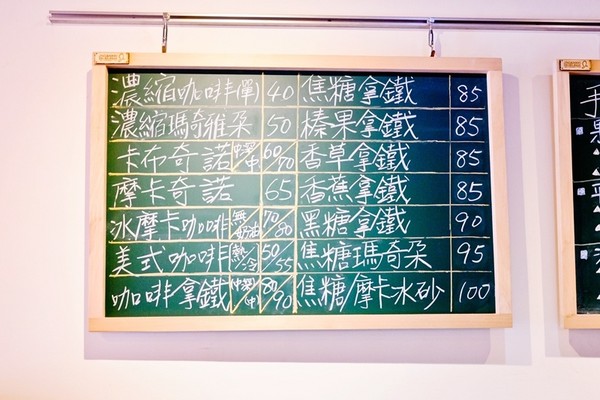 濃縮咖啡(單) 40 焦糖拿鐵 85
濃縮瑪奇雅朵 50 榛果拿鐵 85
卡布奇諾 60/70 香草拿鐵 85
摩卡奇諾 65 香蕉拿鐵 85
冰摩卡咖啡 無/奶油 70/80 黑糖拿鐵 90
美式咖啡 熱/冷 50/55 焦糖瑪奇朵 95
咖啡拿鐵 80/90 焦糖/摩卡冰砂 100